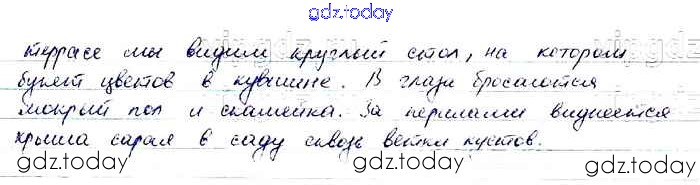 gdz.today
террасе мы видим круглый стол, на котором
букет цветов в кувшине. В глаза бросаются
мокрый пол и скамейка. За перилами виднеется
крыша сарая в саду сквозь ветки кустов.
gdz.today gdz.today gdz.today